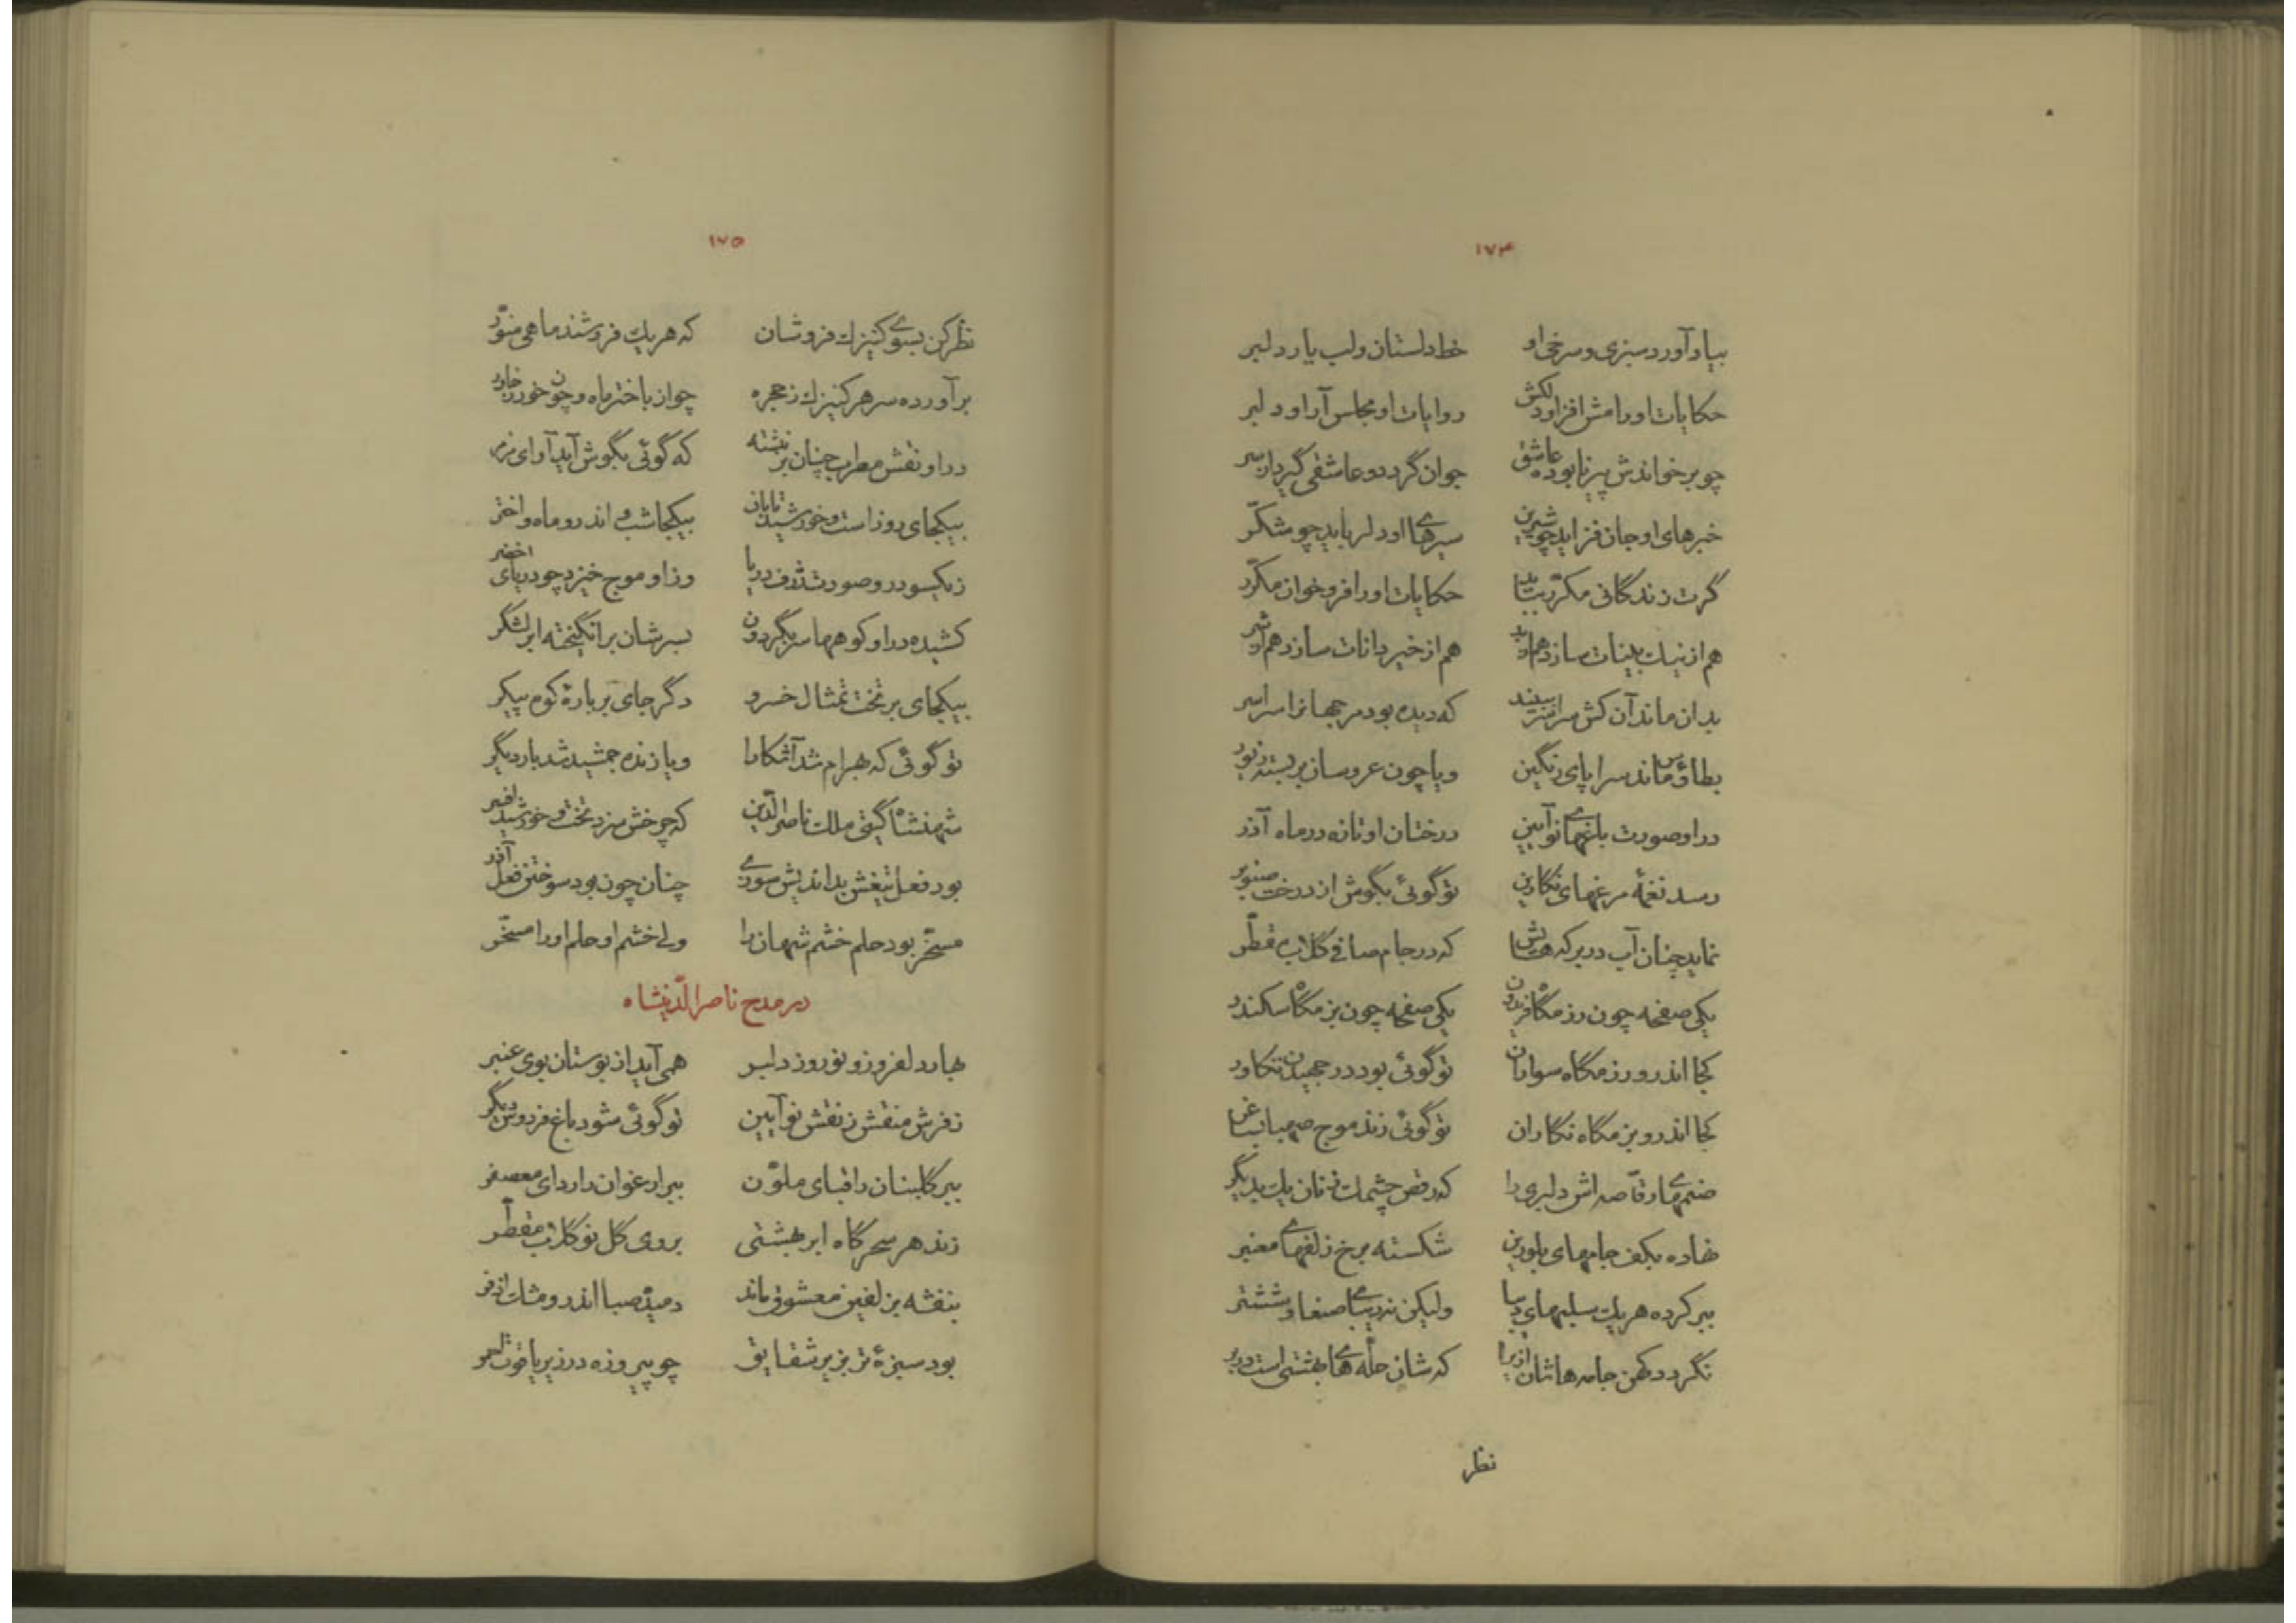 ۱۷۴
بیاد آورد سبزی و سرخی او خط دلستان و لب یار دلبر
حکایات او رامش افزا و دلکش روایات او مجلس آرا و دلبر
چو برخواندش پیر نابوده عاشق جوان گردد و عاشقی گیرد از سر
خبرهای او جان فزاید چو شیرین سیرهای او دل رباید چو شکّر
گرت زندگانی مکرّر بباید حکایات او را فرو خوان مکرّر
هم از
بدان ماند آن کش سراسر ببیند که دیده بود مر جهانرا سراسر
بطاؤس ماند سراپای رنگین و یا چون عروسان بر بسته زیور
در او صورت باغهای نوآیین درختان او تازه در ماه آذر
رسد نغمهٔ مرغهای نگارین تو گوئی بگوش از درخت صنوبر
نماید چنان آب در برکه هایش که در جام صافی گلاب مقطّر
یکی صفحه چون رزمگاه فریدون یکی صفحه چون بزمگاه سکندر
کجا اندرو رزمگاه سواران تو گوئی بود در جهیدن تکاور
کجا اندرو بزمگاه نگاران تو گوئی زند موج صهبا بساغر
صنمهای رقّاصه اش دلبری را که رقص چشمک زنان یک بدیگر
نهاده بکف جامهای بلورین شکسته برخ زلفهای معنبر
ببر کرده هر یک سلبهای دیبا ولیکن نه دیبای صنعا و ششتر
نگردد کهن جامه هاشان ازیرا که شان حله های بهشتی است در بر
نظر
۱۷۵
نظر کن بسوی کنیزک فروشان که هر یک فروشند ماهی منوّر
برآورده سر هر کنیزک ز حجره چو از باختر ماه و چون خور ز خاور
در او نقش مطرب چنان بر نشسته که گوئی بگوش آید آوای مزمر
بیکجای روز است و خورشید تابان بیکجا شب و اندرو ماه و اختر
ز یکسو درو صورت ژرف دریا وز او موج خیزد چو دریای اخضر
کشیده در او کوهها سر بگردون بسرشان برانگیخته ابر لشگر
بیکجای بر تخت تمثال خسرو دگر جای بر بارهٔ کوه پیکر
تو گوئی که بهرام شد آشکارا و یا زنده جمشید شد بار دیگر
شهنشاه گیتی ملک ناصرالدّین که چرخش سزد تخت و خورشید افسر
بود فعل تیغش بداندیش سوزی چنان چون بود سوختن فعل آذر
مسخّر بود حلم خشم شهان را ولی خشم او حلم او را مسخّر
در مدح ناصرالدّینشاه
بهار دلفروز و نوروز دلبر همی آید از بوستان بوی عنبر
ز فرش منقش ز نقش نوآیین تو گوئی شود باغ فردوس دیگر
ببر گلبنان را قبای ملوّن ببر ارغوان را ردای معصفر
زند هر سحرگاه ابر بهشتی بروی گل نو گلاب مقطّر
بنفشه بزلفین معشوق ماند دمیده صبا اندرو مشک اذفر
بود سبزهٔ تر بزیر شقایق چو پیروزه در زیر یاقوت احمر